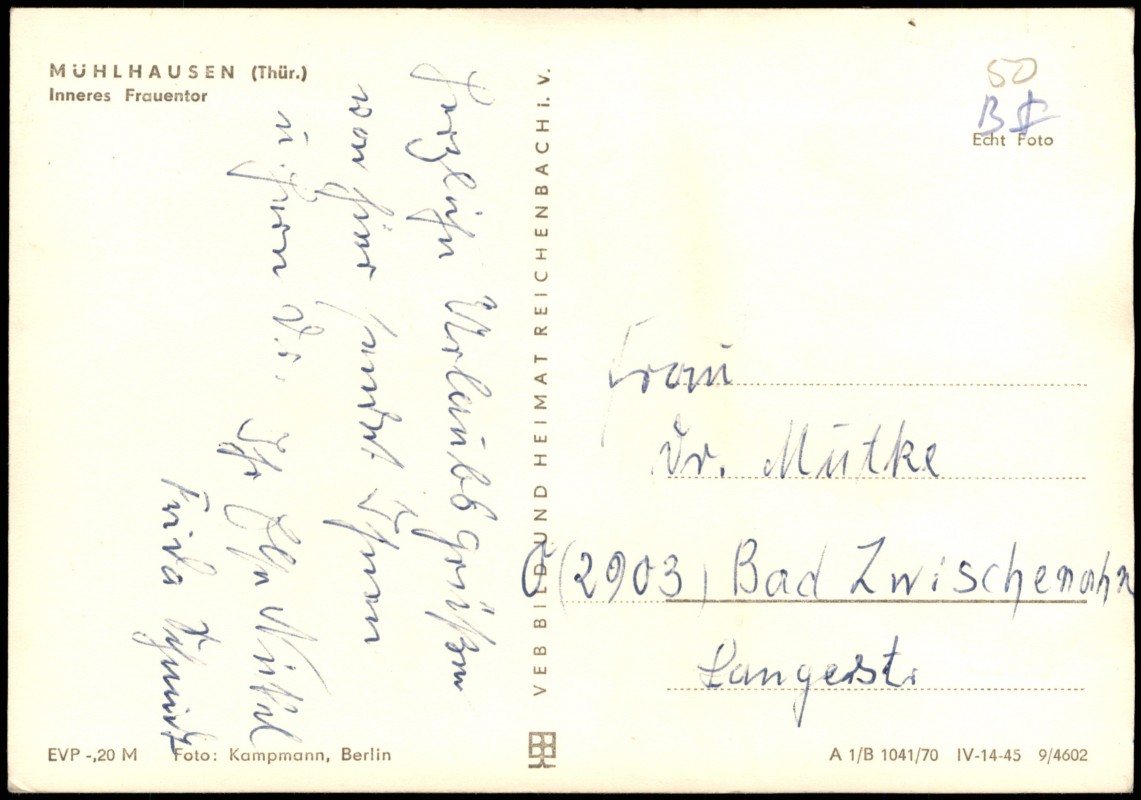 MÜHLHAUSEN (Thür.)
Inneres Frauentor
Herzliche Urlaubsgrüße
von hier sendet Ihnen
u. Herrn Dr. Ihr Else Nickel
Frida Schmidt
VEB BILD UND HEIMAT REICHENBACH i. V.
50
B
Echt Foto
Frau
Dr. Mutke
(2903) Bad Zwischenahn
Langestr.
EVP -,20 M
Foto: Kampmann, Berlin
A 1/B 1041/70 IV-14-45 9/4602